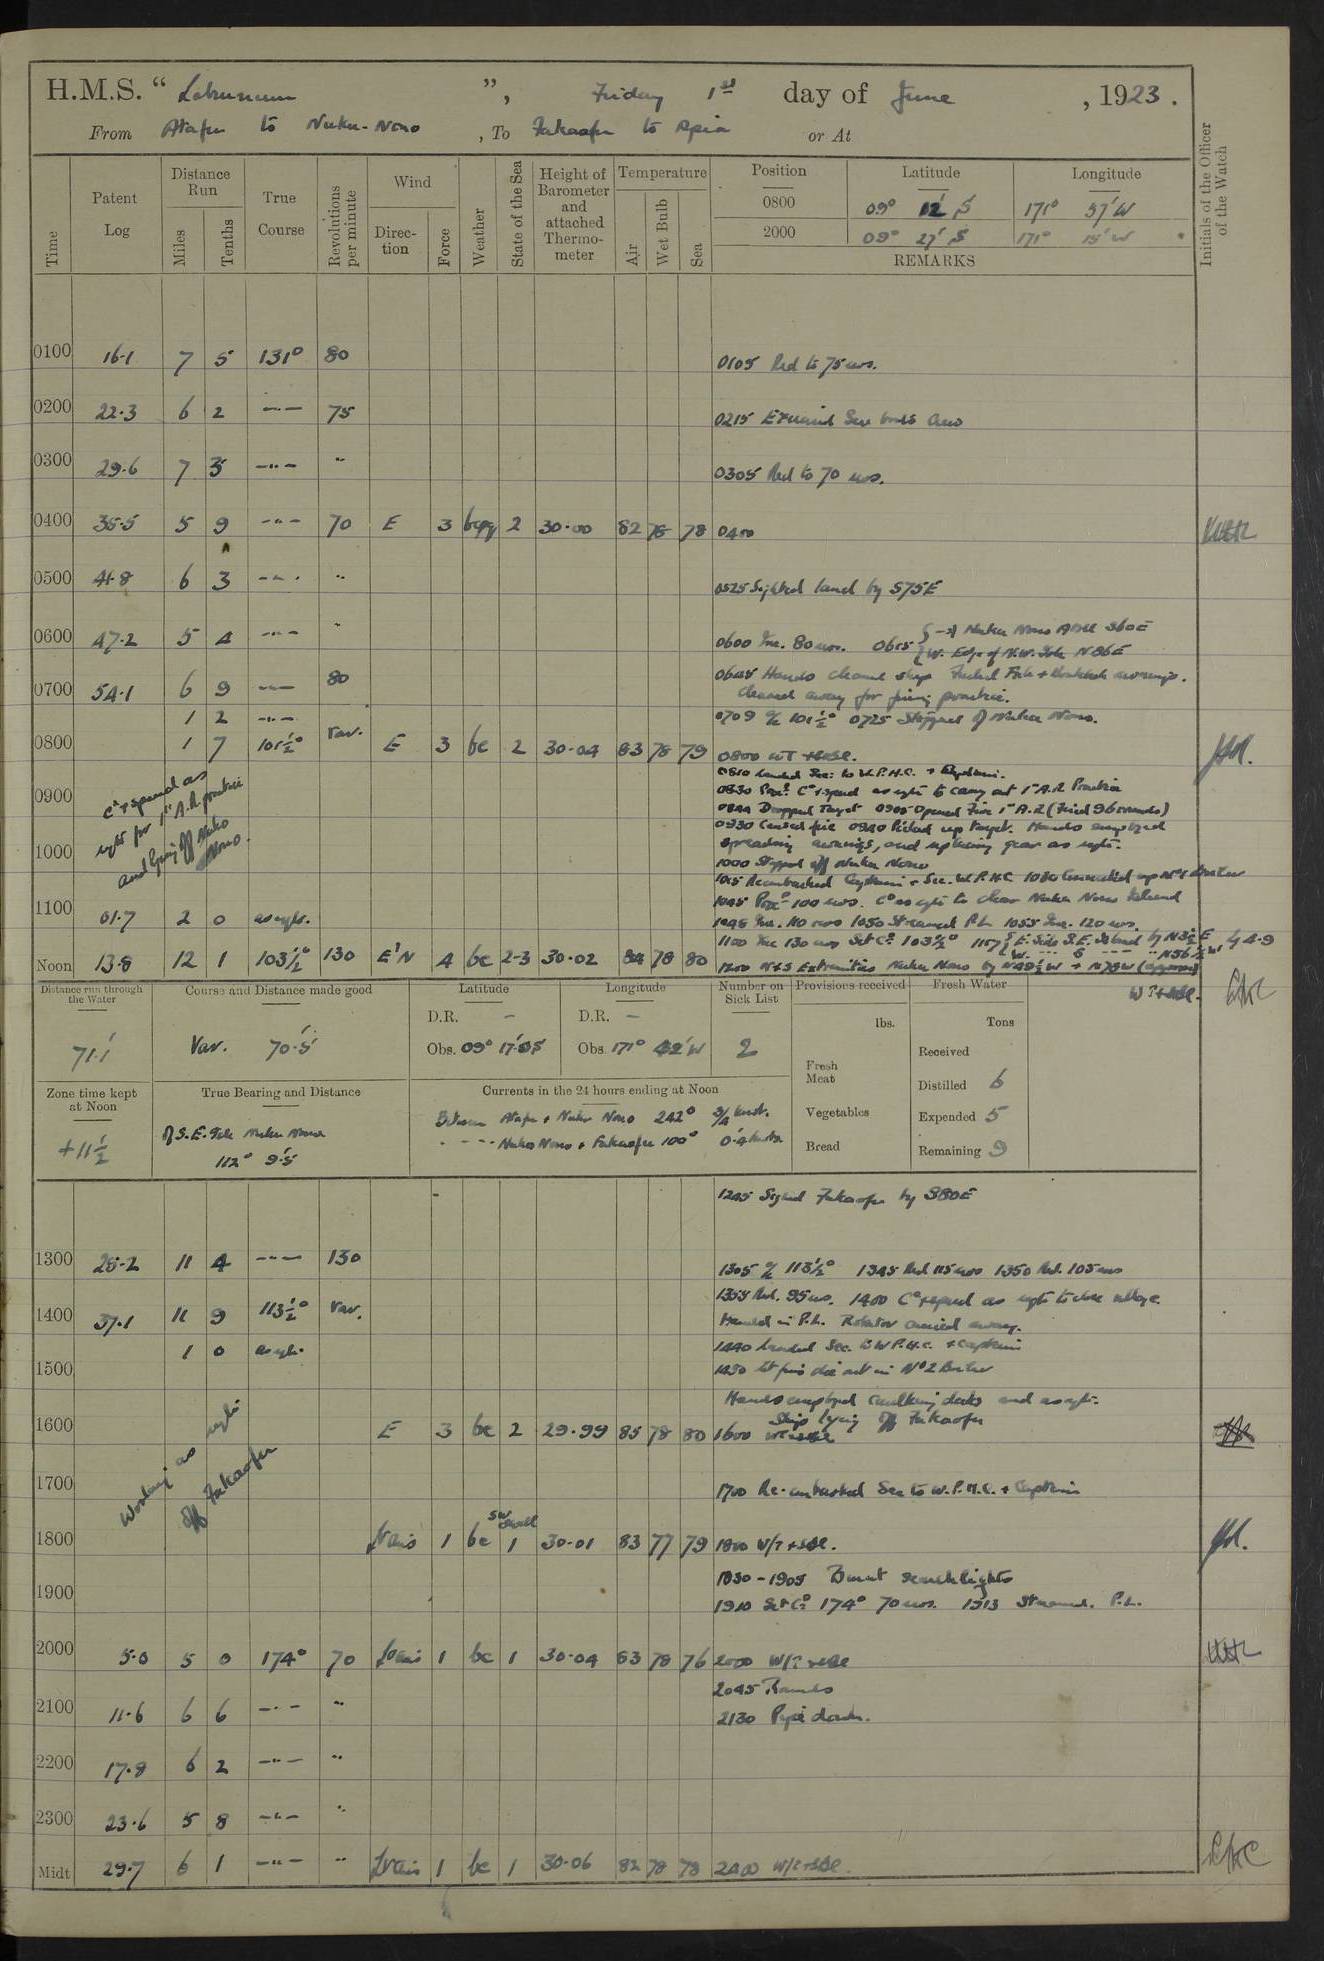 H.M.S. “ Laburnum ”, Friday 1st day of June , 1923.
From Atafu to Nuku-Nono , To Fakaofu to Apia or At
Time
Patent Log
Distance Run
Miles
Tenths
True Course
Revolutions per minute
Wind
Direction
Force
Weather
State of the Sea
Height of Barometer and attached Thermometer
Temperature
Air
Wet Bulb
Sea
Position Latitude Longitude
0800 09° 12' S 171° 37' W
2000 09° 27' S 171° 15' W
REMARKS
Initials of the Officer of the Watch
0100 16.1 7 5 131° 80 0105 Red to 75 revs.
0200 22.3 6 2 —"— 75 0215 Exercised Sea boats crew
0300 29.6 7 3 —"— " 0305 Red to 70 revs.
0400 35.5 5 9 —"— 70 E 3 bcpq 2 30.00 82 78 78 0400
0500 41.8 6 3 —"— " 0525 Sighted land by S75E
0600 47.2 5 4 —"— " 0600 Inc. 80 revs. 0615 Nuku Nono S60E
W. Edge of N.W. Isle N86E
0700 54.1 6 9 —"— 80 0645 Hands cleaned ship awnings.
cleared away for firing practice.
1 2 —"— 0709 a/c 101½° 0725 Stopped off Nuku Nono.
0800 1 7 101½° var. E 3 bc 2 30.04 83 78 79 0800 WT + SBE.
0810 Landed Sec: to W.P.H.C. + Captain.
0900 Co + speed as reqte for 1" A.R. practice and lying off Nuku Nono.
0830 Proc. Co + speed as reqte to carry out 1" A.R. Practice
0844 Dropped Target 0905 Opened Fire 1" A.R (Fired 96 rounds)
0930 Ceased fire 0940 Picked up target. Hands employed
spreading awnings, and replacing gear as reqte.
1000 1000 Stopped off Nuku Nono
1015 Reembarked Captain + Sec. W.P.H.C 1030 Connected up No 1 Boiler
1045 Proc. 100 revs. Co as reqte to clear Nuku Nono Island
1100 01.7 2 0 as reqte. 1048 Inc. 110 revs 1050 Streamed P.L. 1055 Inc. 120 revs.
1100 Inc 130 revs Set Co. 103½° 1157 E. Side S.E. Island by N3½E 4.9
Noon 13.8 12 1 103½° 130 E'N 4 bc 2-3 30.02 84 78 80 1200 N + S Extremities Nuku Nono by N49½W + N78W (approx)
WT + SBE.
Distance run through the Water
71.1'
Course and Distance made good
Var. 70.5'
Latitude
D.R. —
Obs. 09° 17'.0S
Longitude
D.R. —
Obs. 171° 42' W
Number on Sick List
2
Provisions received
lbs.
Fresh Meat
Vegetables
Bread
Fresh Water
Tons
Received
Distilled 6
Expended 5
Remaining 9
Zone time kept at Noon
+11½
True Bearing and Distance
Of S.E. Isle Nuku Nono
112° 9.5'
Currents in the 24 hours ending at Noon
Between Atafu + Nuku Nono 242° ¾ knot.
" Nuku Nono + Fakaofu 100° 0.4 knots
1245 Sighted Fakaofu by S80E
1300 25.2 11 4 —"— 130 1305 a/c 113½° 1345 Red 115 revs 1350 Red. 105 revs
1355 Red. 95 revs. 1400 Co + speed as reqte to close village.
1400 37.1 11 9 113½° Var. Hauled in P.L. Rotator carried away.
1 0 as reqte. 1440 Landed Sec. to W.P.H.C. + Captain
1500 1450 Let fires die out in No 2 Boiler
Hands employed caulking decks and as reqte.
Ship lying off Fakaofu
1600 E 3 bc 2 29.99 85 78 80 1600 WT + SBE
1700 Working as reqte off Fakaofu 1700 Re-embarked Sec to W.P.H.C. + Captain
1800 Lrairs 1 bc SW swell 1 30.01 83 77 79 1800 W/T + SBE.
1830 - 1905 Burnt searchlights
1900 1910 Set Co. 174° 70 revs. 1913 Streamed P.L.
2000 5.0 5 0 174° 70 Lrairs 1 bc 1 30.04 83 78 76 2000 W/T + SBE
2045 Rounds
2100 11.6 6 6 —"— " 2130 Pipe down.
2200 17.8 6 2 —"— "
2300 23.6 5 8 —"— "
Midt 29.7 6 1 —"— " Lrairs 1 bc 1 30.06 82 78 78 2400 W/T + SBE.